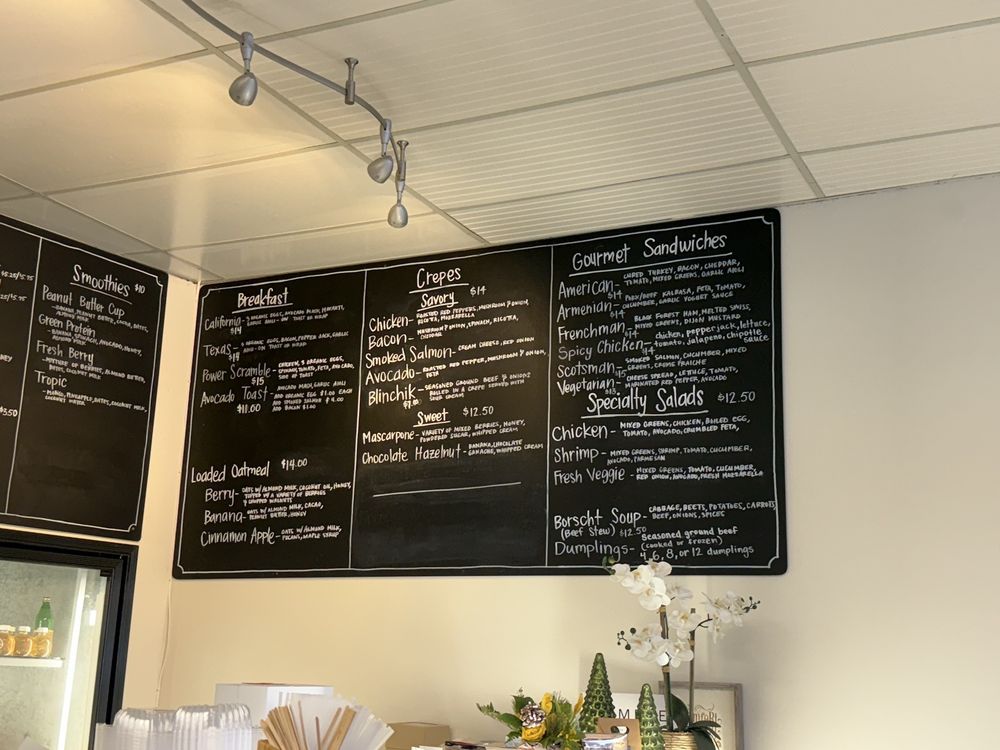 $5.25/$5.75
$5.50
Smoothies $10
Peanut Butter Cup
- BANANA, PEANUT BUTTER, CACAO, DATES,
ALMOND MILK
Green Protein
- BANANA, SPINACH, AVOCADO, HONEY,
ALMOND MILK
Fresh Berry
- MIXTURE OF BERRIES, ALMOND BUTTER,
DATES, COCONUT MILK
Tropic
- MANGO, PINEAPPLE, DATES, COCONUT MILK,
COCONUT WATER
Breakfast
California - 3 ORGANIC EGGS, AVOCADO
GARLIC AIOLI - ON TOAST OR WRAP
$14
Texas - 3 ORGANIC EGGS, BACON, PEPPER JACK, GARLIC
AIOLI - ON TOAST OR WRAP
$14
Power Scramble - CHICKEN, 3 ORGANIC EGGS,
SPINACH, TOMATO, FETA, AVOCADO,
SIDE OF TOAST
$15
Avocado Toast - AVOCADO MASH, GARLIC AIOLI
ADD ORGANIC EGG $1.00 EACH
ADD SMOKED SALMON $4.00
ADD BACON $3.00
$11.00
Loaded Oatmeal $14.00
Berry - OATS W/ALMOND MILK, COCONUT OIL, HONEY,
TOPPED W/A VARIETY OF BERRIES
& CHOPPED WALNUTS
Banana - OATS W/ ALMOND MILK, CACAO,
PEANUT BUTTER, HONEY
Cinnamon Apple - OATS W/ ALMOND MILK,
PECANS, MAPLE SYRUP
Crepes
Savory $14
Chicken - ROASTED RED PEPPERS, MUSHROOM & ONION,
RICOTTA, MOZZARELLA
Bacon - MUSHROOM & ONION, SPINACH, RICOTTA,
CHEDDAR
Smoked Salmon - CREAM CHEESE, RED ONION
Avocado - ROASTED RED PEPPER, MUSHROOM & ONION,
FETA
Blinchik - SEASONED GROUND BEEF & ONIONS
ROLLED IN A CREPE SERVED WITH
SOUR CREAM
Sweet $12.50
Mascarpone - VARIETY OF MIXED BERRIES, HONEY,
POWDERED SUGAR, WHIPPED CREAM
Chocolate Hazelnut - BANANA, CHOCOLATE
GANACHE, WHIPPED CREAM
Gourmet Sandwiches
American - CURED TURKEY, BACON, CHEDDAR,
TOMATO, MIXED GREENS, GARLIC AIOLI
$14
Armenian - PORK/BEEF KALBASA, FETA, TOMATO,
CUCUMBER, GARLIC YOGURT SAUCE
$14
Frenchman - BLACK FOREST HAM, MELTED SWISS,
MIXED GREENS, DIJON MUSTARD
$14
Spicy Chicken - chicken, pepperjack, lettuce,
tomato, jalapeno, chipotle
sauce
$14
Scotsman - SMOKED SALMON, CUCUMBER, MIXED
GREENS, CREME FRAICHE
$15
Vegetarian - CHEESE SPREAD, LETTUCE, TOMATO,
MARINATED RED PEPPER, AVOCADO
$13
Specialty Salads $12.50
Chicken - MIXED GREENS, CHICKEN, BOILED EGG,
TOMATO, AVOCADO, CRUMBLED FETA,
Shrimp - MIXED GREENS, SHRIMP, TOMATO, CUCUMBER,
AVOCADO, PARMESAN
Fresh Veggie - MIXED GREENS, TOMATO, CUCUMBER,
RED ONION, AVOCADO, FRESH MOZZARELLA
Borscht Soup - CABBAGE, BEETS, POTATOES, CARROTS,
BEEF, ONIONS, SPICES
(Beef Stew) $12.50
Dumplings - Seasoned ground beef
(cooked or frozen)
4, 6, 8, or 12 dumplings